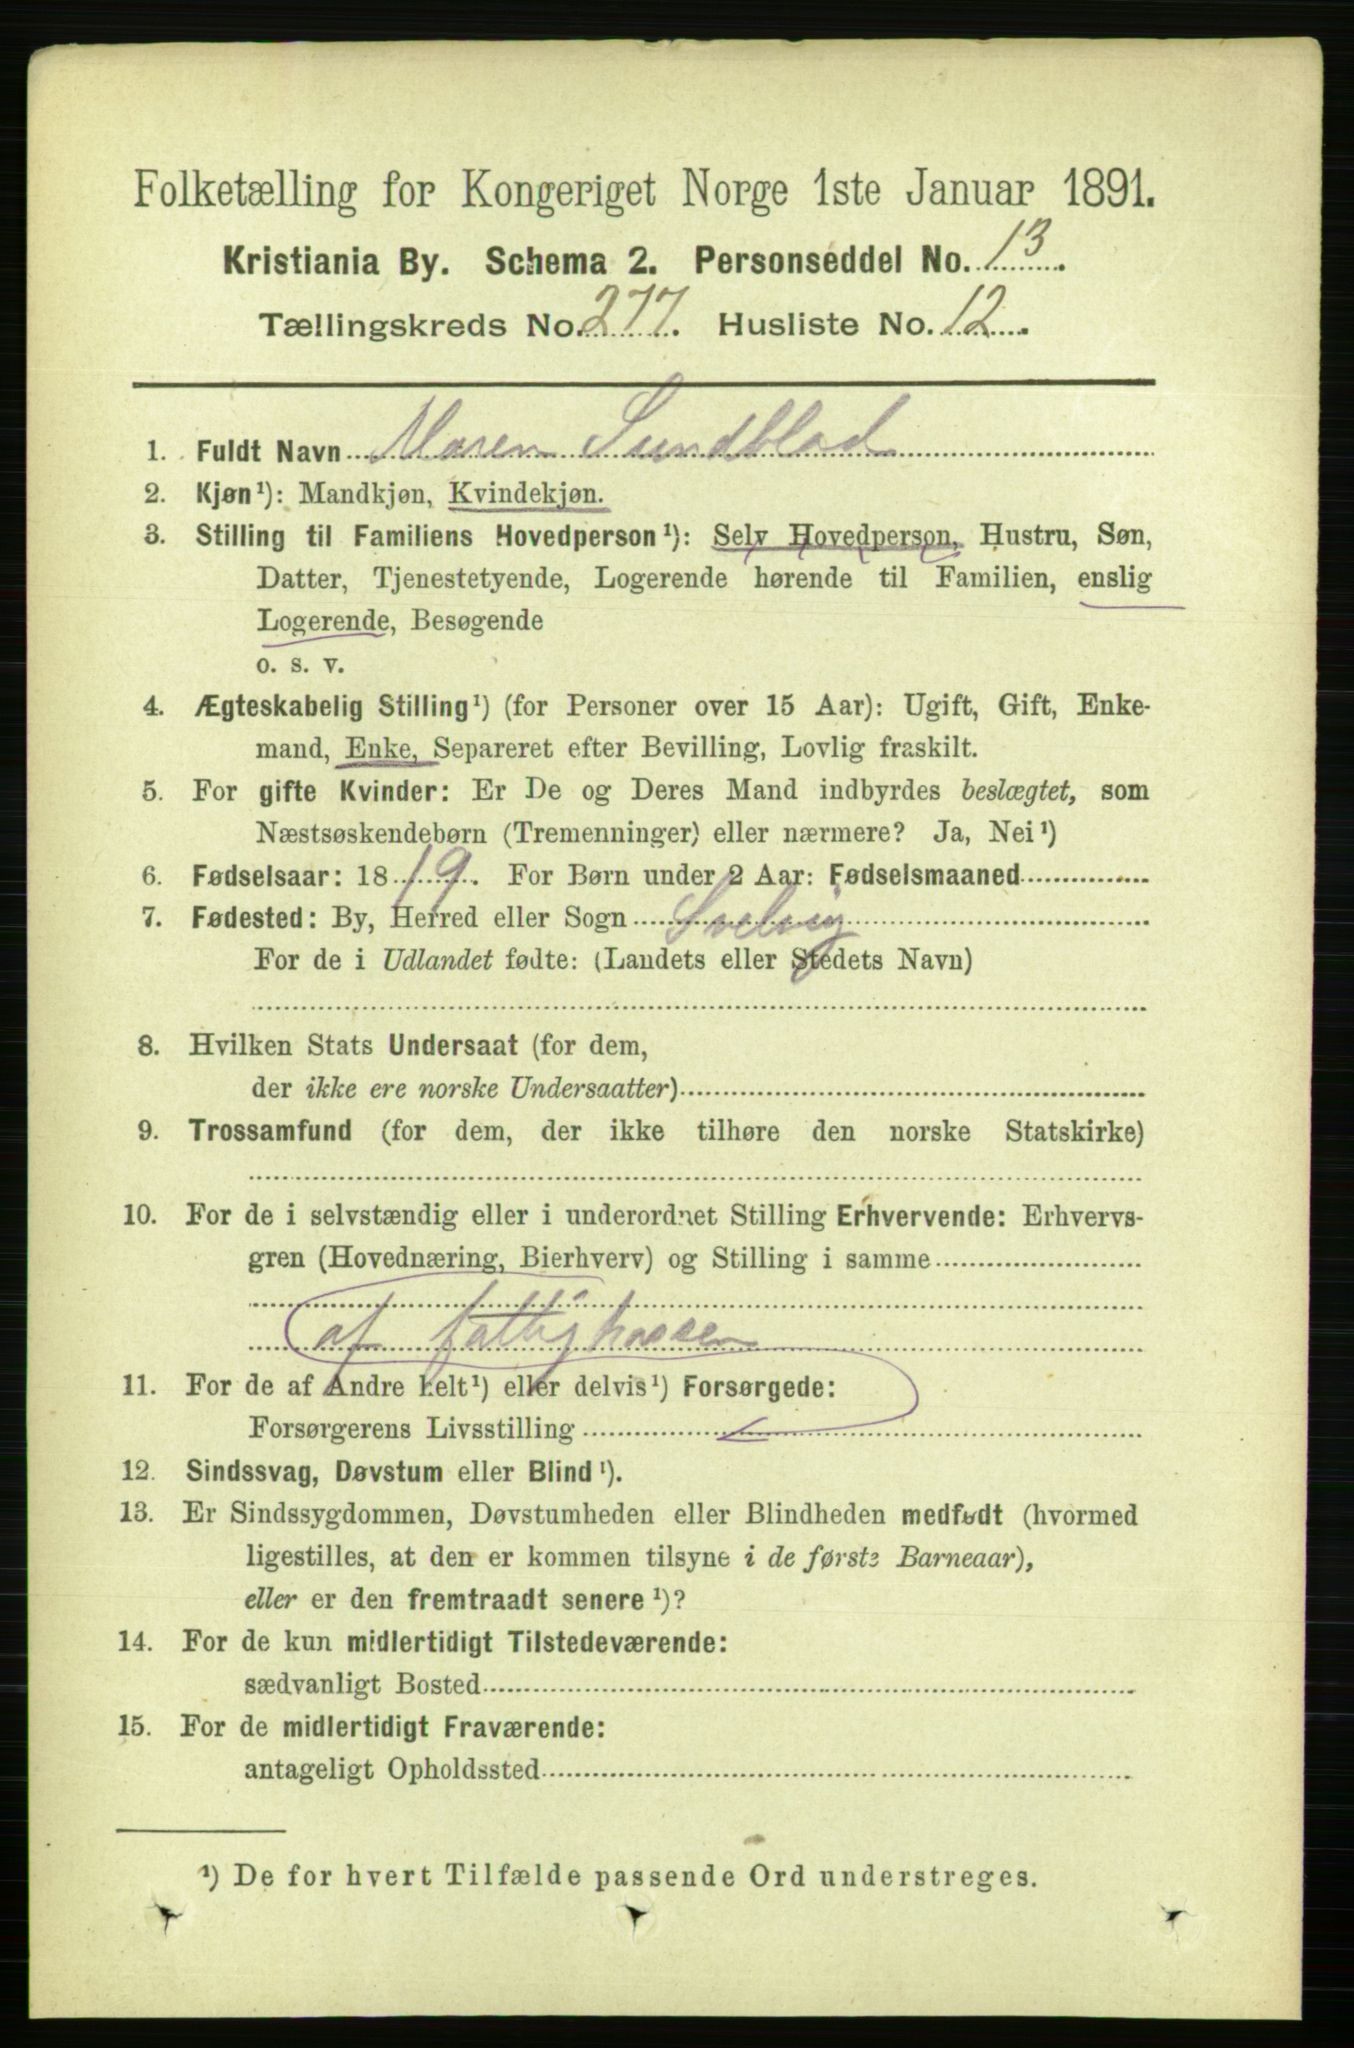 Folketælling for Kongeriget Norge 1ste Januar 1891.
Kristiania By. Schema 2. Personseddel No. 13.
Tællingskreds No. 277. Husliste No. 12.
1. Fuldt Navn Maren Sundblad
2. Kjøn¹): Mandkjøn, Kvindekjøn.
3. Stilling til Familiens Hovedperson¹): Selv Hovedperson, Hustru, Søn,
Datter, Tjenestetyende, Logerende hørende til Familien, enslig
Logerende, Besøgende
o. s. v.
4. Ægteskabelig Stilling¹) (for Personer over 15 Aar): Ugift, Gift, Enke-
mand, Enke, Separeret efter Bevilling, Lovlig fraskilt.
5. For gifte Kvinder: Er De og Deres Mand indbyrdes beslægtet, som
Næstsøskendebørn (Tremenninger) eller nærmere? Ja, Nei¹)
6. Fødselsaar: 1819. For Børn under 2 Aar: Fødselsmaaned
7. Fødested: By, Herred eller Sogn Svelvig
For de i Udlandet fødte: (Landets eller Stedets Navn)
8. Hvilken Stats Undersaat (for dem,
der ikke ere norske Undersaatter)
9. Trossamfund (for dem, der ikke tilhøre den norske Statskirke)
10. For de i selvstændig eller i underordnet Stilling Erhvervende: Erhvervs-
gren (Hovednæring, Bierhverv) og Stilling i samme
af fattigkassen
11. For de af Andre helt¹) eller delvis¹) Forsørgede:
Forsørgerens Livsstilling
12. Sindssvag, Døvstum eller Blind¹).
13. Er Sindssygdommen, Døvstumheden eller Blindheden medfødt (hvormed
ligestilles, at den er kommen tilsyne i de første Barneaar),
eller er den fremtraadt senere¹)?
14. For de kun midlertidigt Tilstedeværende:
sædvanligt Bosted
15. For de midlertidigt Fraværende:
antageligt Opholdssted
¹) De for hvert Tilfælde passende Ord understreges.